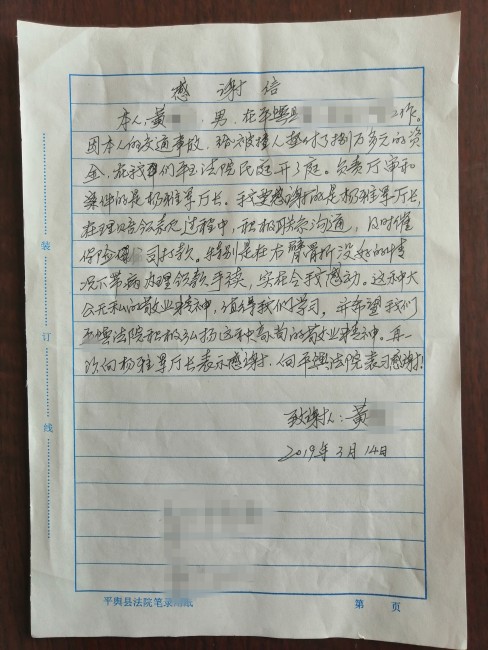 感谢信
本人黄 男，在平舆县 工作。
因本人的交通事故，给被撞人垫付了捌万多元的资
金，在我们平舆法院民庭开了庭。负责厅审和
案件的是杨雅军厅长。我要感谢的是杨雅军厅长，
在理赔领款过程中，积极联系沟通，及时催
保险公司打款。特别是在右臂骨折没好的情
况下带病办理领款手续，实在令我感动。这种大
公无私的敬业精神，值得我们学习，并希望我们
平舆法院积极弘扬这种高尚的敬业精神。再一
次向杨雅军厅长表示感谢，向平舆法院表示感谢！
致谢人：黄
2019年3月14日
装
订
线
平舆县法院笔录用纸
第 页